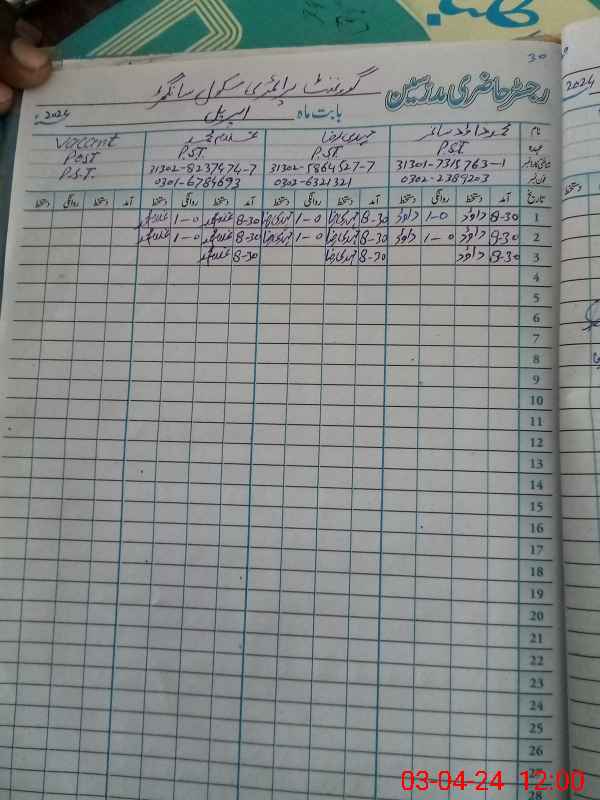 30
گورنمنٹ پرائمری سکول سانگھڑ
رجسٹر حاضری مدرسین
بابت ماہ اپریل 2024ء
2024
نام محمد داؤد ساغر مہدی رضا غلام محمد Vacant
عہدہ P.S.T. P.ST P.S.T. Post
31301-7315763-1 31302-5864527-7 31302-8237474-7 P.S.T.
0302-2389203 0302-6321321 0301-6784693
تاریخ آمد دستخط روانگی دستخط آمد دستخط روانگی دستخط آمد دستخط روانگی دستخط آمد دستخط روانگی دستخط
1 8-30 داؤد 1-0 داؤد 8-30 مہدی رضا 1-0 مہدی رضا 8-30 غلام محمد 1-0 غلام محمد
2 8-30 داؤد 1-0 داؤد 8-30 مہدی رضا 1-0 مہدی رضا 8-30 غلام محمد 1-0 غلام محمد
3 8-30 داؤد 8-30 مہدی رضا 8-30 غلام محمد
4
5
6
7
8
9
10
11
12
13
14
15
16
17
18
19
20
21
22
23
24
25
26
27
28
03-04-24 12:00